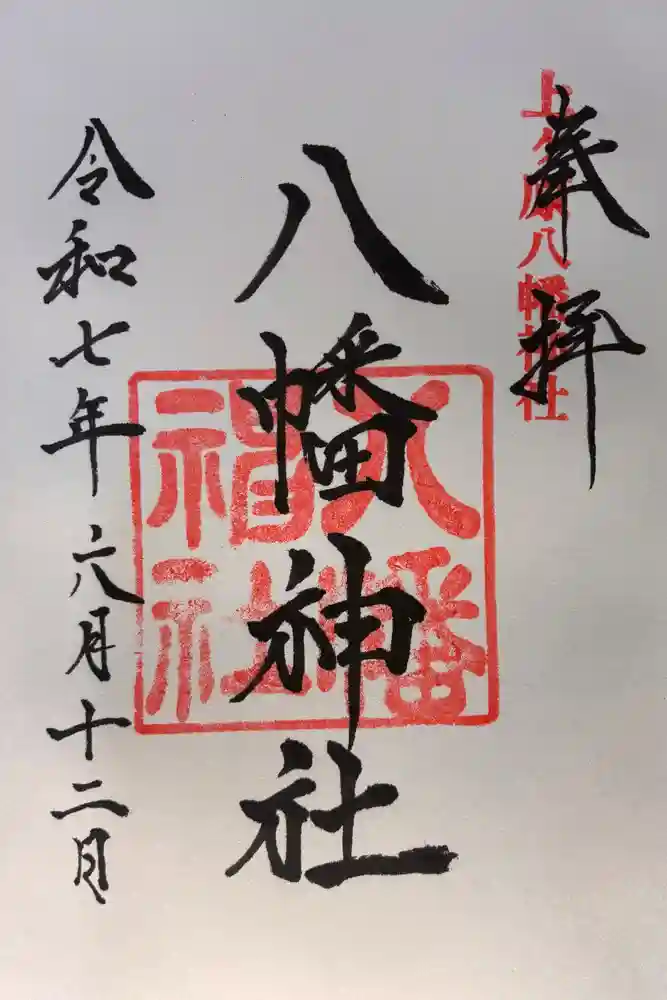 奉拝
上 原八幡神社
八幡神社
八幡
神社
令和七年六月十二日